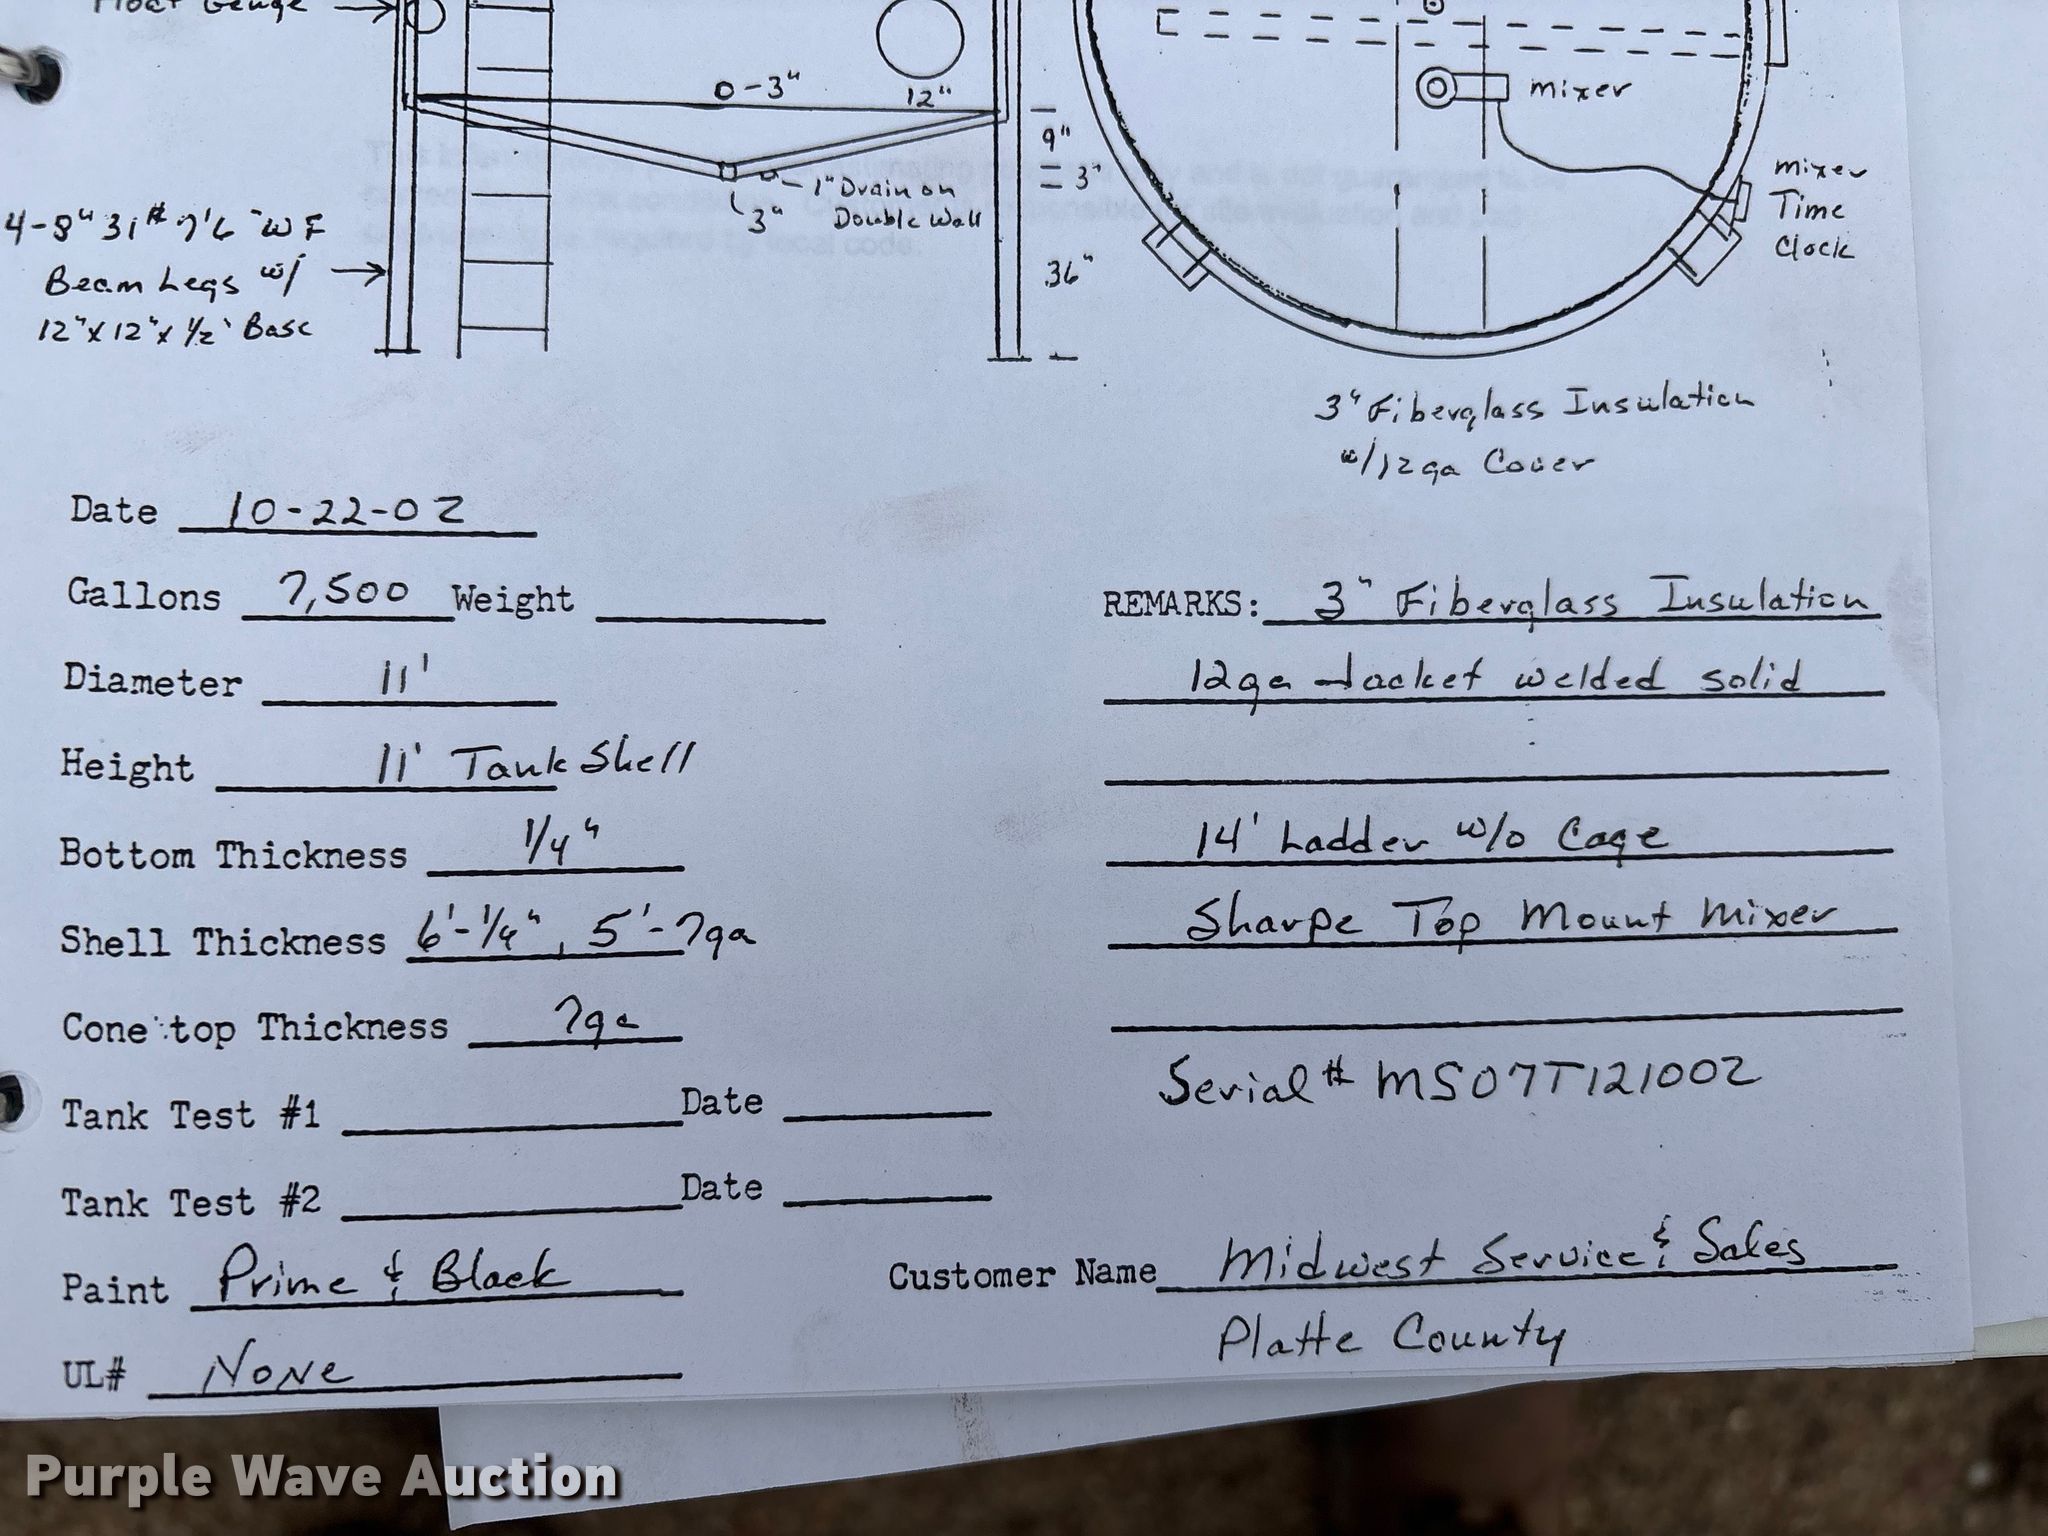 Float Gauge
0-3"
12"
mixer
9"
3"
1" Drain on
Double Wall
3"
36"
mixer
Time
Clock
4-8" 31# 7'6" WF
Beam Legs w/
12"x12"x1/2" Base
3" Fiberglass Insulation
w/12ga Cover
Date 10-22-02
Gallons 7,500 Weight
Diameter 11'
Height 11' Tank Shell
Bottom Thickness 1/4"
Shell Thickness 6'-1/4", 5'-7ga
Cone top Thickness 7ga
Tank Test #1 Date
Tank Test #2 Date
Paint Prime & Black
UL# None
REMARKS: 3" Fiberglass Insulation
12ga Jacket welded solid
14' Ladder w/o Cage
Sharpe Top Mount Mixer
Serial# MS07T121002
Customer Name Midwest Service & Sales
Platte County
Purple Wave Auction